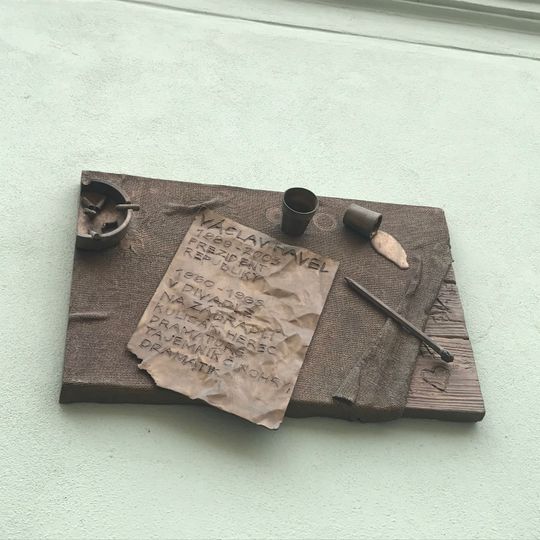 VÁCLAV HAVEL
1989-2003
PREZIDENT
REPUBLIKY
1960-1968
V DIVADLE
NA ZÁBRADLÍ
KULISÁK, HEREC
DRAMATURG
TAJEMNÍK
DRAMATIK